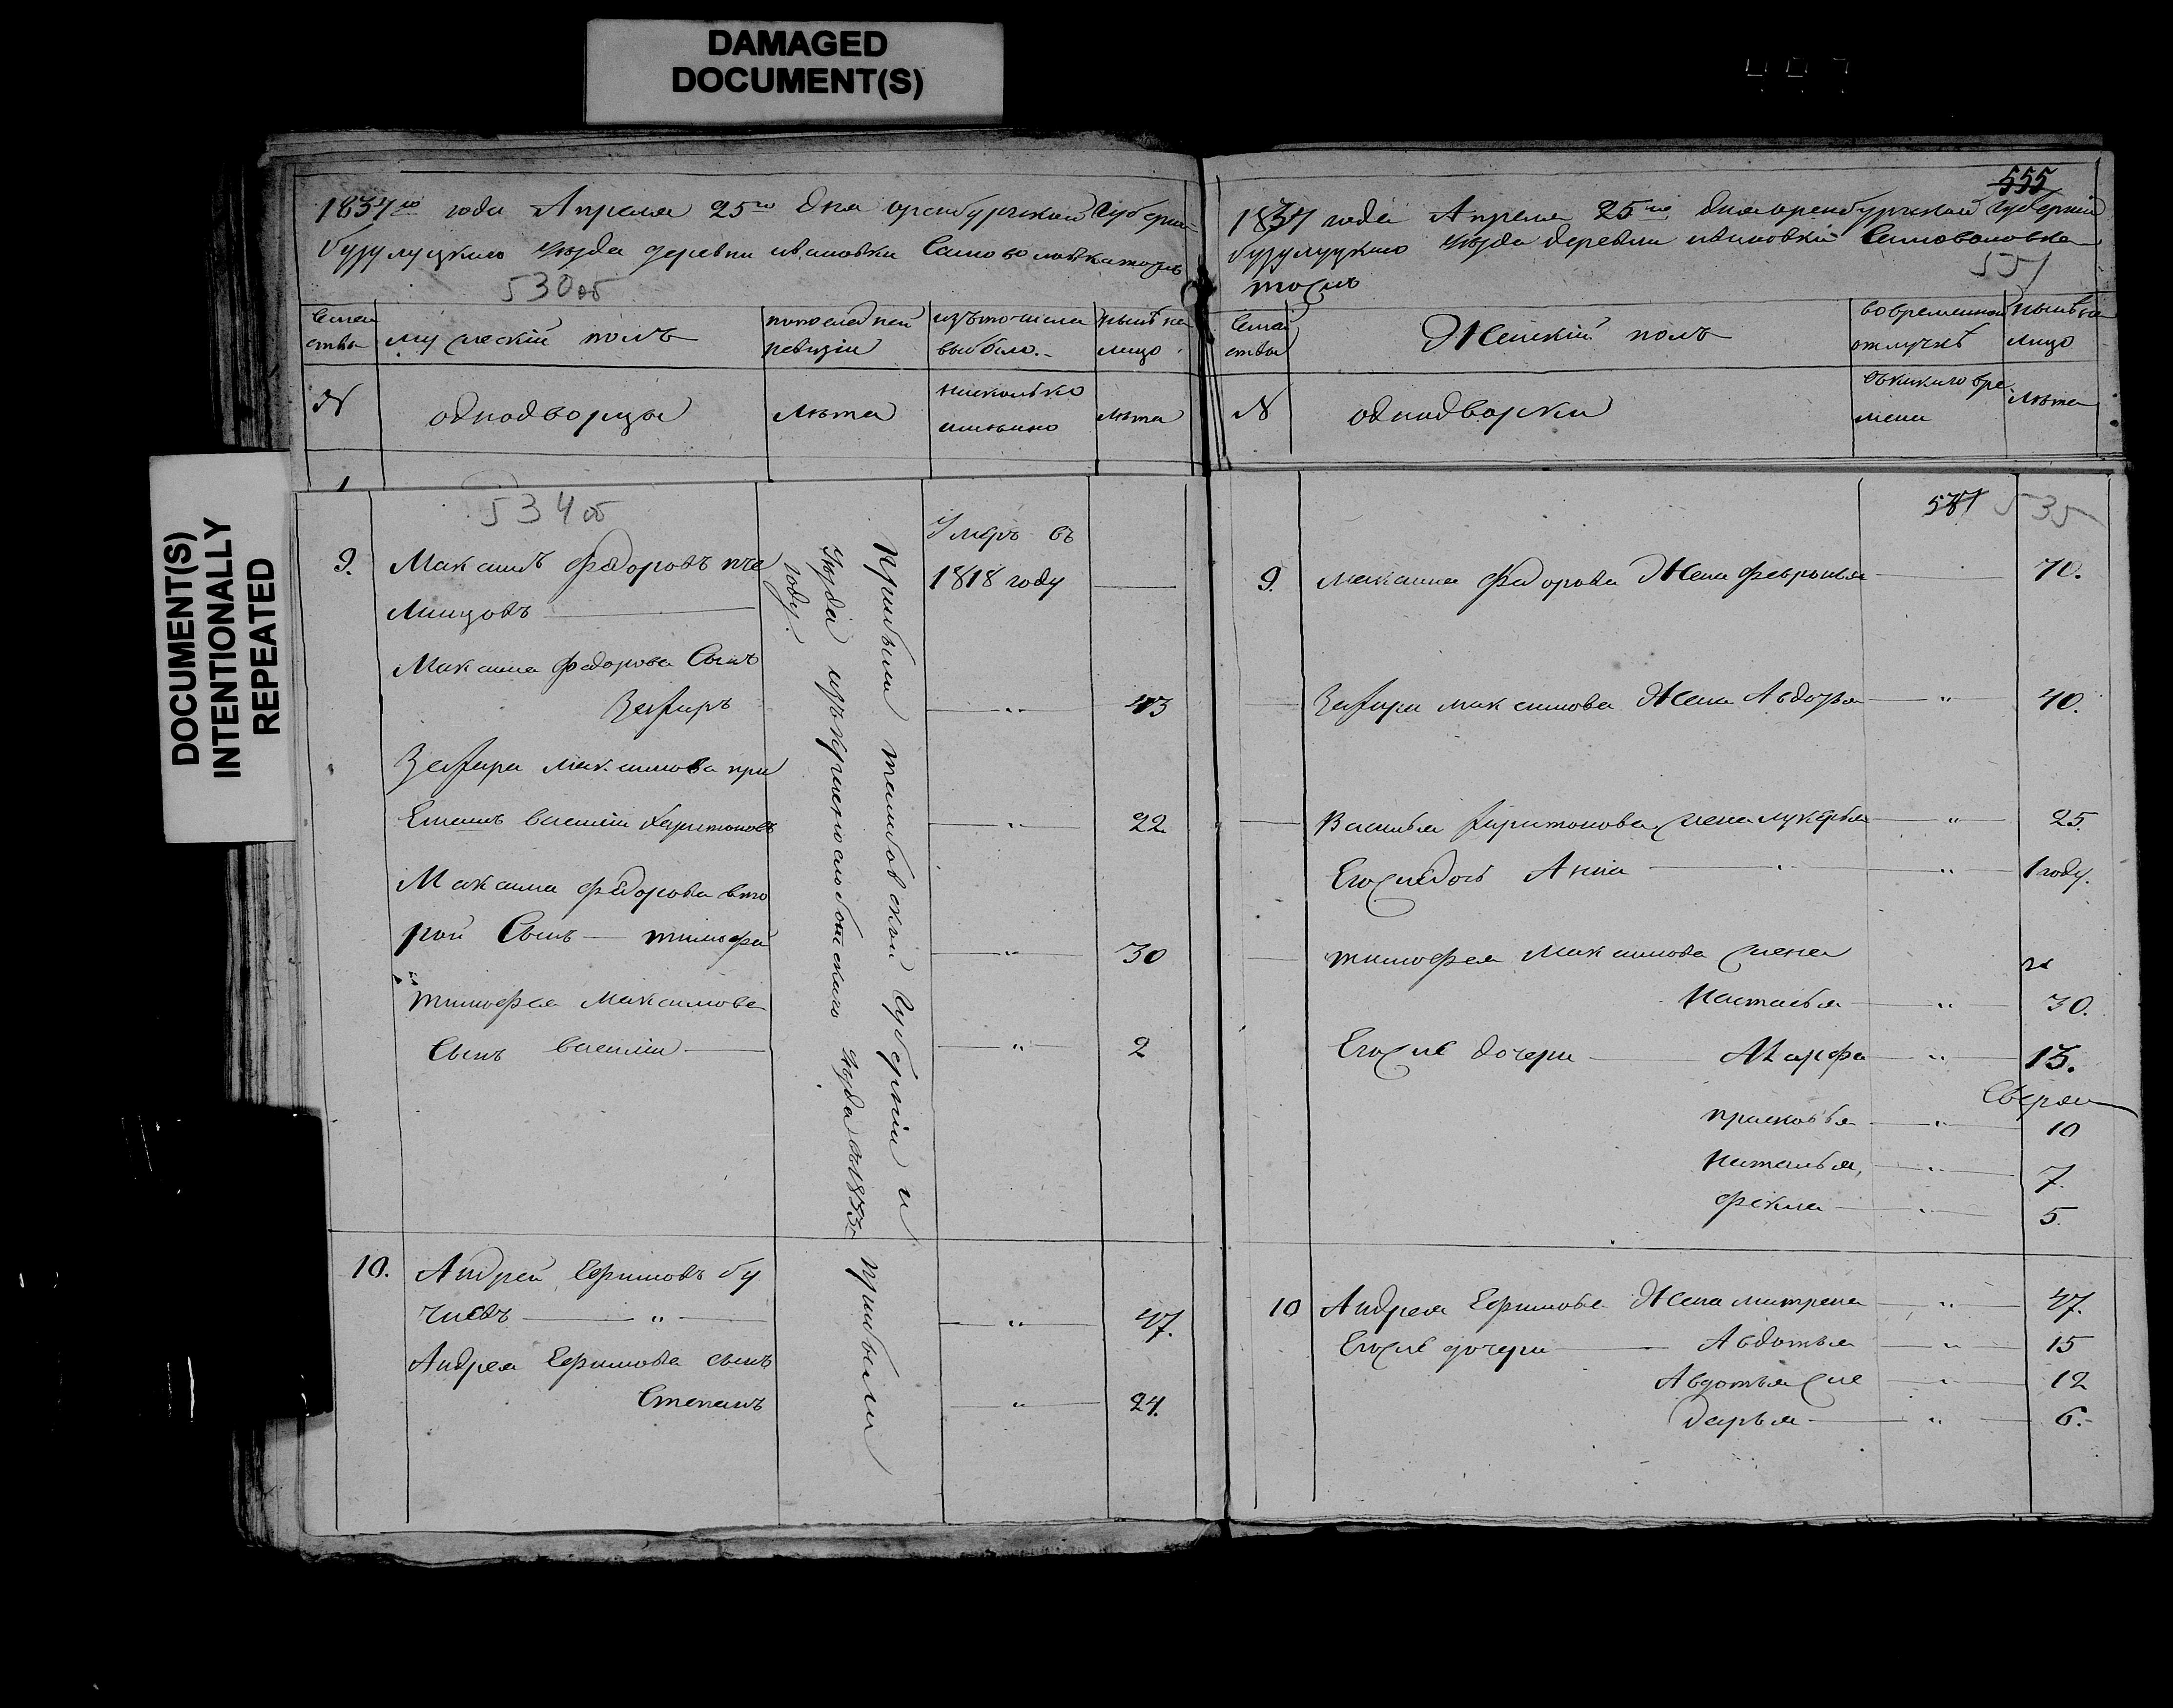 DAMAGED
DOCUMENT(S)
DOCUMENT(S)
INTENTIONALLY
REPEATED
1834го года Апреля 25го дня оренбургской Губернии
бузулуцкаго уезда деревни ивановки Самоволовка тожъ
530 об
Семей
ства
мужеский полъ
по последней
ревизии
изъ того числа
выбыло.
ныне на
лицо
N
однодворцы
лета
лета
534 об
9.
Максимъ федоровъ
Умеръ въ
1818 году
Максима федорова Сынъ
Захаръ
43
Захара максимова при
Емышъ василий харитоновъ
22
Максима федорова вто
рой Сынъ тимофей
30
тимофея Максимова
Сынъ василий
2
прибыли тамбовской губернии и
уезда изъ краснослободскаго уезда в 1833
году.
10.
Андрей Ефимовъ бу
47.
Андрея Ефимова сынъ
Степанъ
24.
прибыли
555
1834 года Апреля 25го дня оренбургской губернии
бузулуцкаго уезда деревни ивановки Самоволовка
тожъ
551
Семей
ства
Женский полъ
во временной
отлучке
ныне на
лицо
N
однодворки
съ какого вре
мени
Лета
535
9.
максима Федорова Жена Февронья
70.
Захара максимова Жена Авдотья
40.
Василья харитонова жена лукерья
25.
Его же дочь Анна
1 году.
тимофея Максимова жена
Настасья
30.
Его же дочери Марфа
13.
прасковья
10
Наталья
7.
фекла
5.
10
Андрея Ефимова Жена матрена
47.
Его же дочери Авдотья
15
Авдотья же
12
Дарья
6.